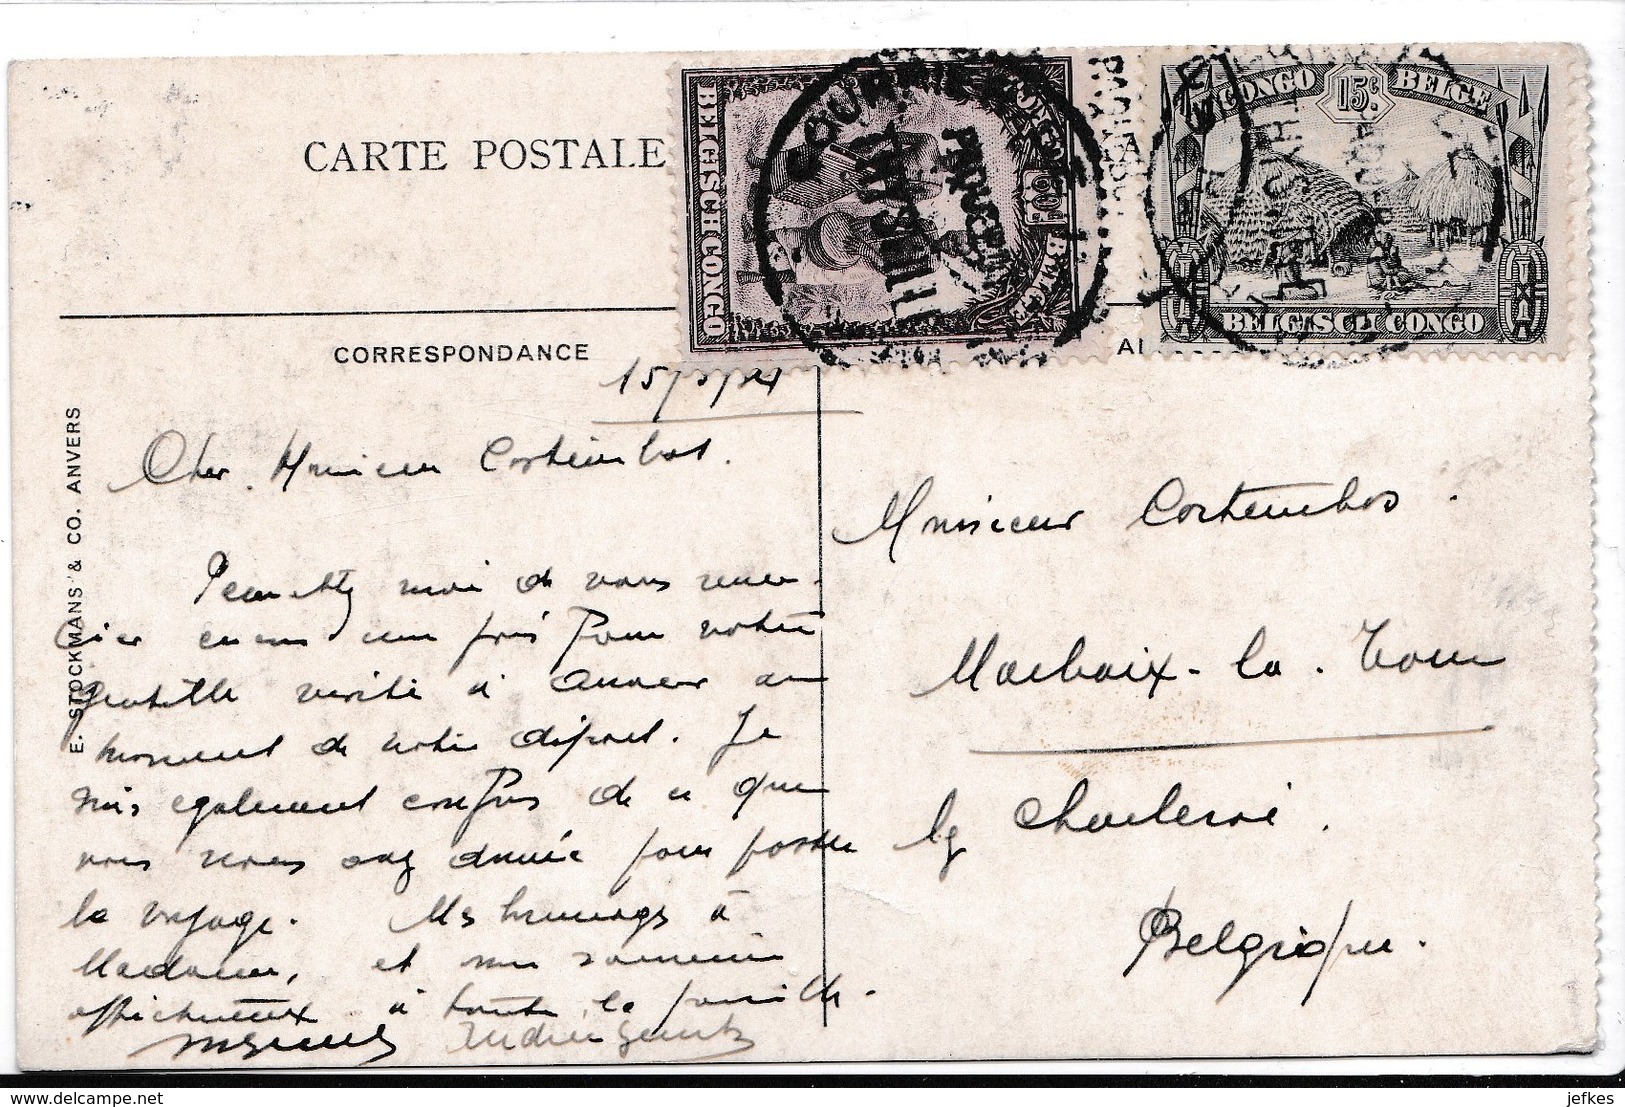 CARTE POSTALE
CORRESPONDANCE
E. STOCKMANS & CO. ANVERS
BELGISCH CONGO
CONGO BELGE
15c
BELGISCH CONGO
PAQUEBOT
Cher Monsieur Cortembos.
Permettez moi de vous remer-
cier encore une fois pour votre
gentille visite à Anvers au
moment de notre départ. Je
suis également confus de ce que
vous nous avez donné pour passer
le voyage. Mes hommages à
Madame, et mon souvenir
affectueux à toute la famille.
Monsieur Cortembos.
Marbaix-la-Tour
lez Charleroi.
Belgique.
www.delcampe.net
jefkes